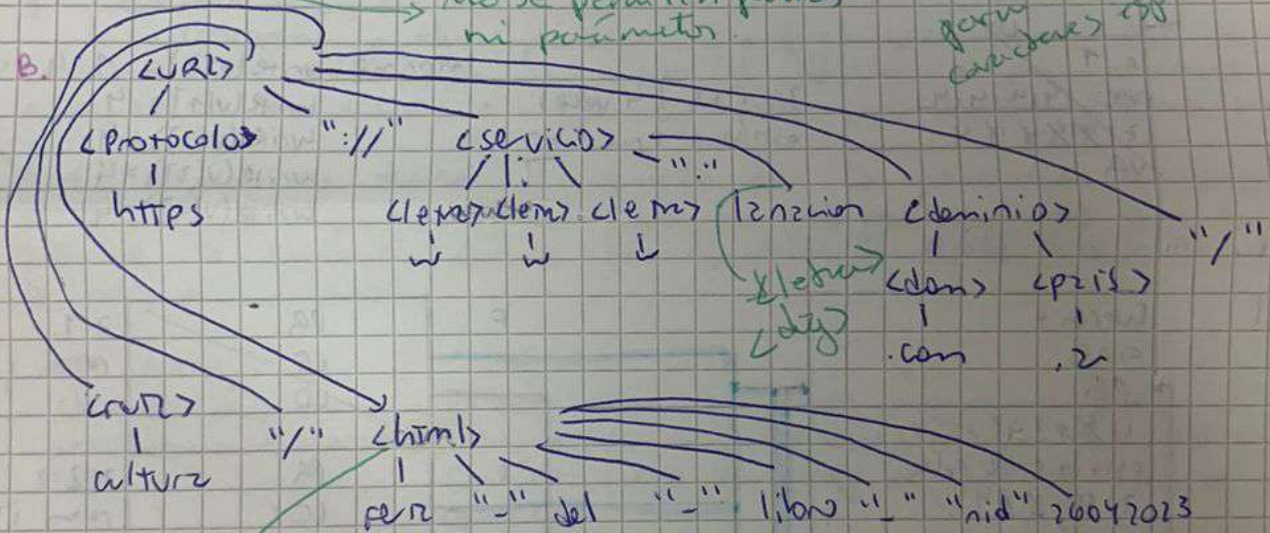 no se permiten
ni parámetros
B.
<URL>
<Protocolo> "://" <servicio> "."
https <letra> <letra> <letra> lanacion <dominio> "/"
w w w <letra> <dom> <pais>
<dig> .com .ar
<ruta> "/" <html>
cultura feria "-" del "-" libro "-" "nid" 26042023